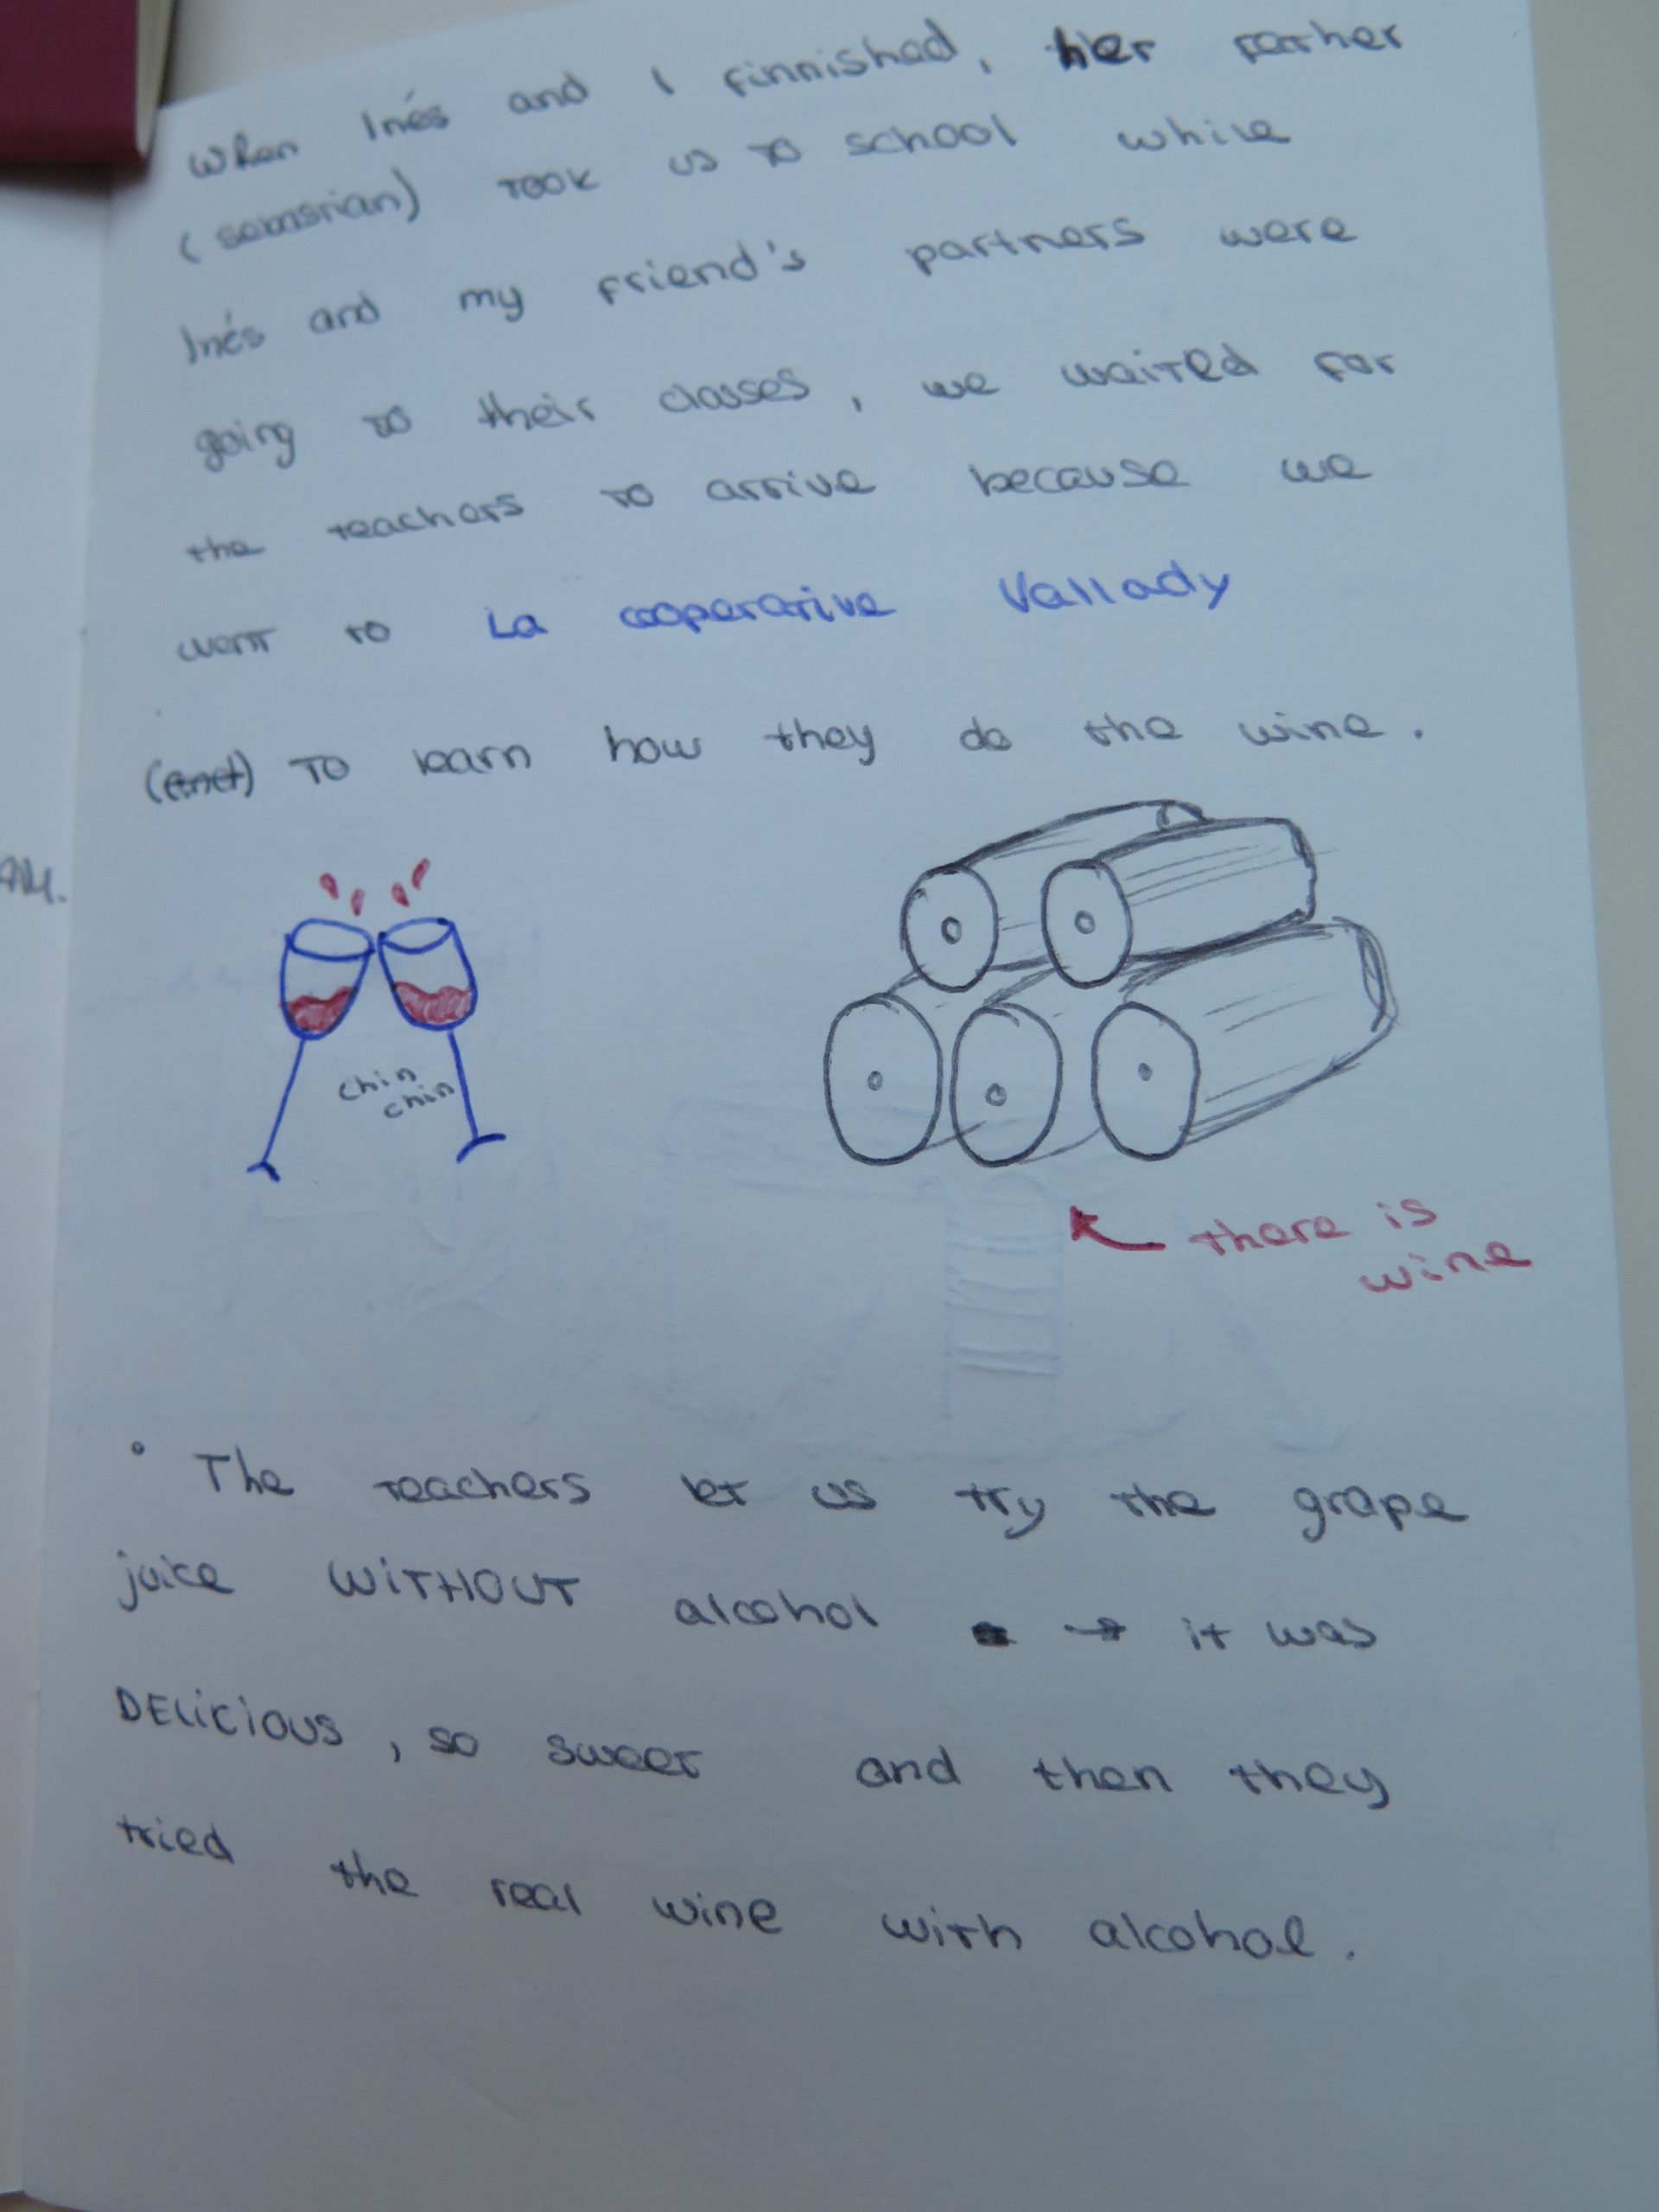 When Inés and I finnished, her father
(sebastian) took us to school while
Inés and my friend's partners were
going to their classes, we waited for
the teachers to arrive because we
went to La cooperative Vallady
To learn how they do the wine.
AM.
chin
chin
there is
wine
The teachers let us try the grape
juice WITHOUT alcohol → it was
DELICIOUS, so sweet and then they
tried the real wine with alcohol.